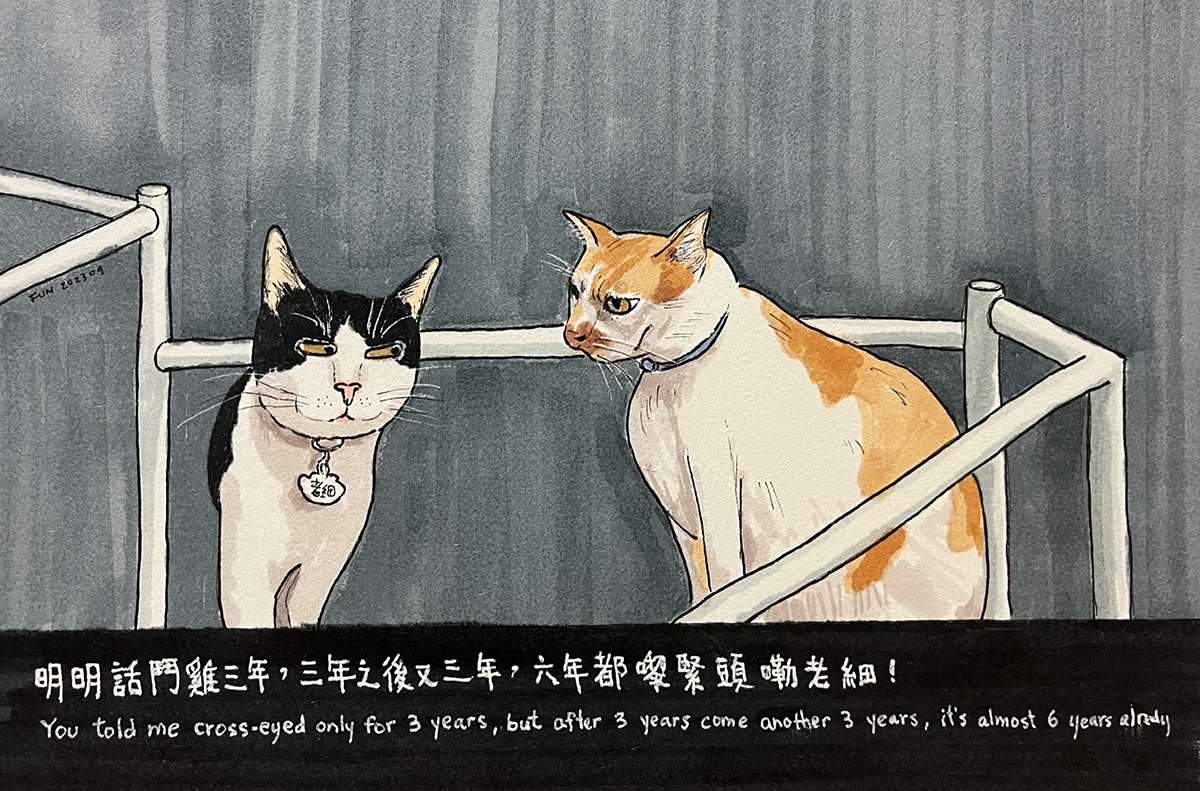 FUN 202309
老細
明明話鬥雞三年，三年之後又三年，六年都嚟緊頭嘞老細！
You told me cross-eyed only for 3 years, but after 3 years come another 3 years, it's almost 6 years already